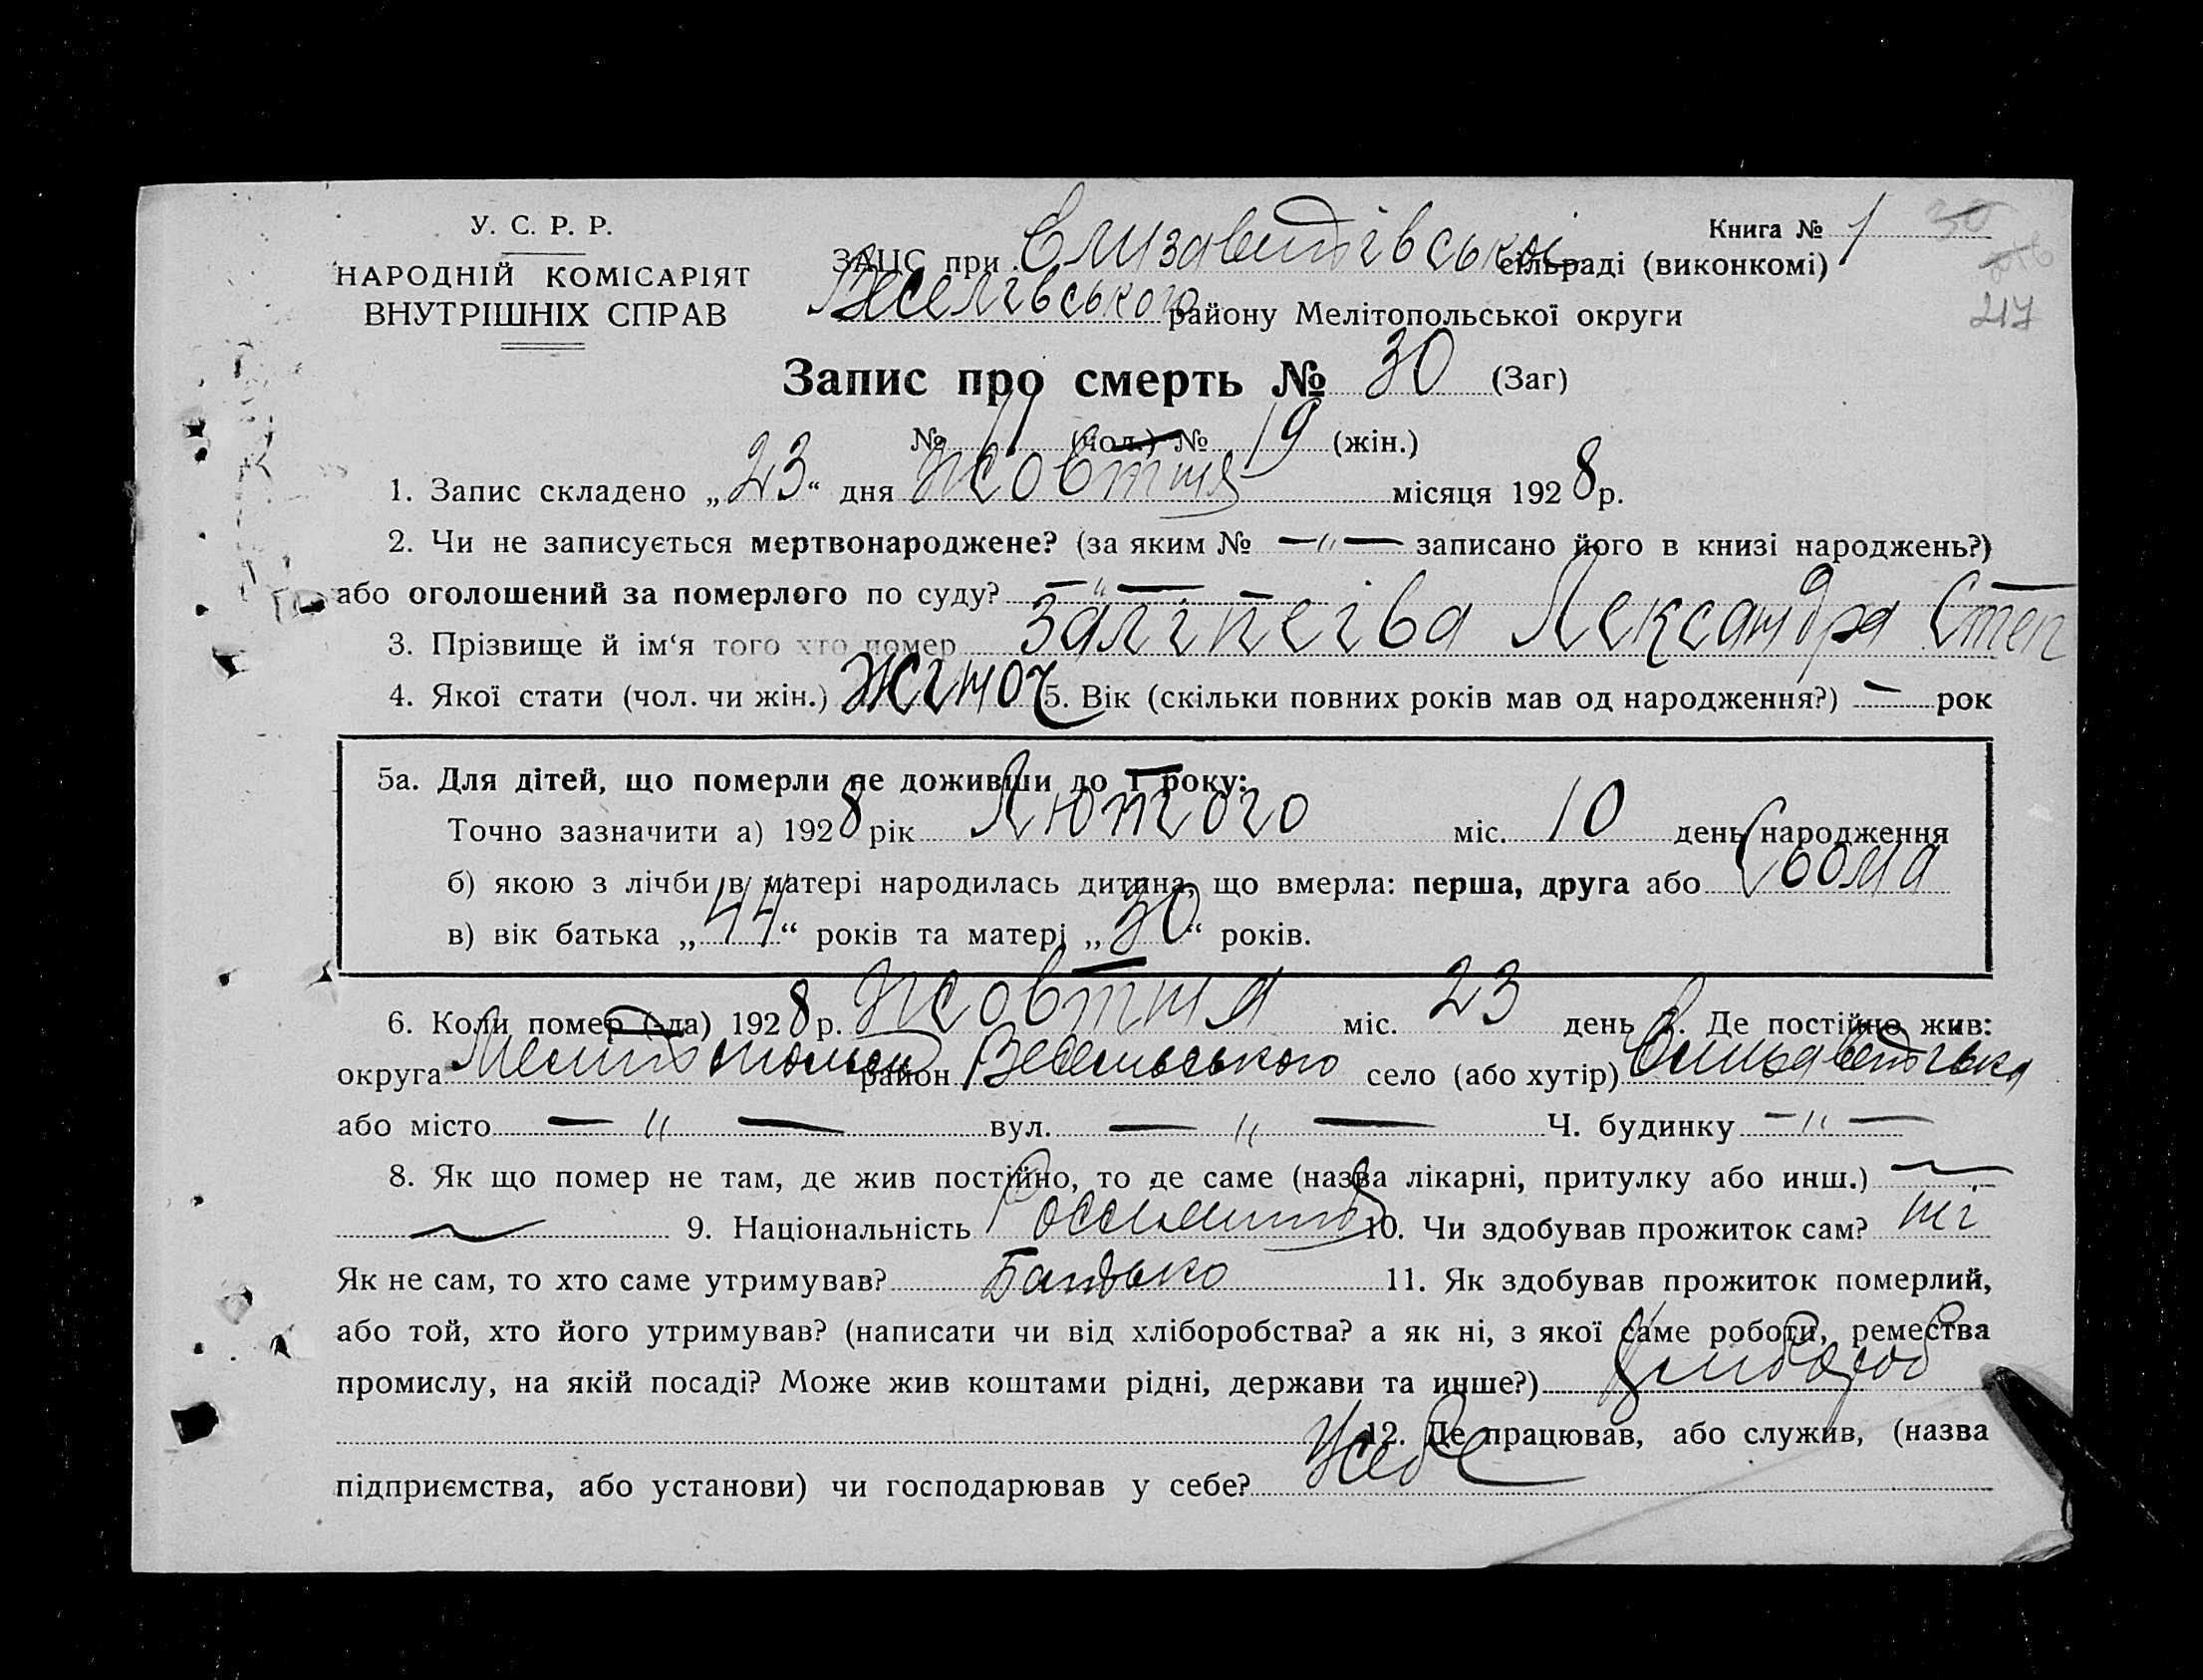 У. С. Р. Р.
НАРОДНІЙ КОМІСАРІЯТ
ВНУТРІШНІХ СПРАВ
Книга № 1
30
217
ЗАЦС при Єлизаветівськоі сільраді (виконкомі)
Веселівського району Мелітопольської округи
Запис про смерть № 30 (Заг)
№ 11 (чол.) № 19 (жін.)
1. Запис складено „23“ дня жовтня місяця 1928 р.
2. Чи не записується мертвонароджене? (за яким № — „ — записано його в книзі народжень?)
або оголошений за померлого по суду? — „ —
3. Прізвище й ім‘я того хто помер Александра Степ
4. Якої стати (чол. чи жін.) жіноч 5. Вік (скільки повних років мав од народження?) — рок
5а. Для дітей, що померли не доживши до 1 року:
Точно зазначити а) 1928 рік Лютого міс. 10 день народження
б) якою з лічби в матері народилась дитина, що вмерла: перша, друга або Сьома
в) вік батька „44“ років та матері „30“ років.
6. Коли помер (-ла) 1928 р. жовтня міс. 23 день 7. Де постійно жив:
округа Мелітопольськ район Веселівського село (або хутір) Єлизаветівка
або місто — „ — вул. — „ — Ч. будинку — „ —
8. Як що помер не там, де жив постійно, то де саме (назва лікарні, притулку або инш.) —
— 9. Національність 10. Чи здобував прожиток сам? ні
Як не сам, то хто саме утримував? Батько 11. Як здобував прожиток померлий,
або той, хто його утримував? (написати чи від хліборобства? а як ні, з якої саме роботи, ремества
промислу, на якій посаді? Може жив коштами рідні, держави та инше?) Хлибороб
12. Де працював, або служив, (назва
підприємства, або установи) чи господарював у себе? Усебе